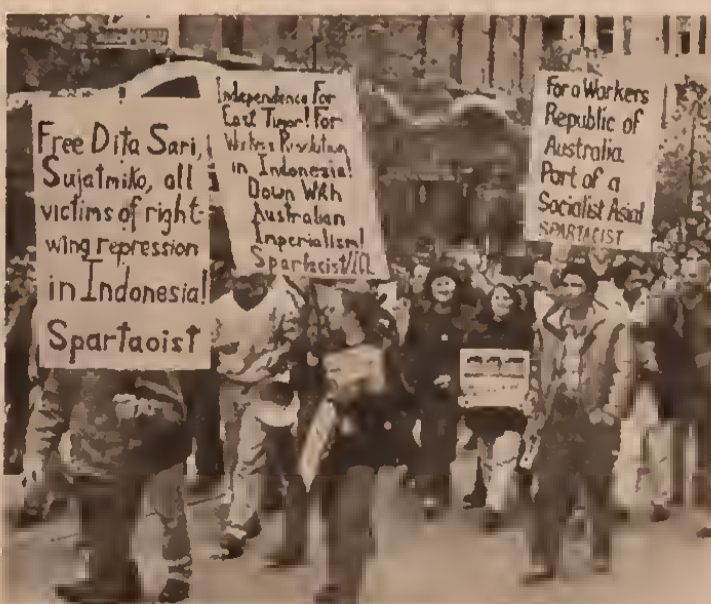 Free Dita Sari,
Sujatmiko, all
victims of right-
wing repression
in Indonesia!
Spartacist
Independence For
East Timor! For
Workers Revolution
in Indonesia!
Down With
Australian
Imperialism!
Spartacist/ICL
For a Workers
Republic of
Australia
Part of a
Socialist Asia!
SPARTACIST